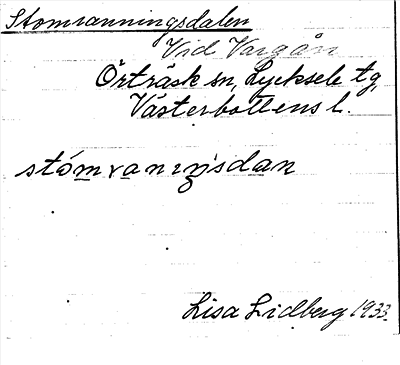 Stomranningsdalen
Vid Vargån
Örträsk sn, Lycksele tg,
Västerbottens l.
stómvanıŋsdan
Lisa Lidberg 1933.